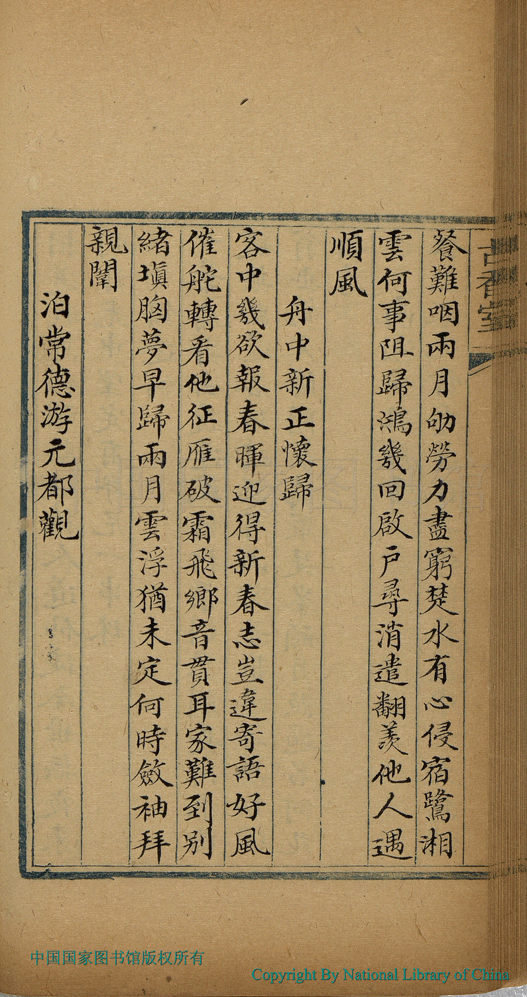 古香室
餐難咽兩月劬勞力盡窮楚水有心侵宿鷺湘
雲何事阻歸鴻幾回啟戶尋消遣翻羨他人遇
順風
舟中新正懷歸
客中幾欲報春暉迎得新春志豈違寄語好風
催舵轉看他征雁破霜飛鄉音貫耳家難到別
緒塡胸夢早歸兩月雲浮猶未定何時斂袖拜
親闈
泊常德游元都觀
中国国家图书馆版权所有
Copyright By National Library of China